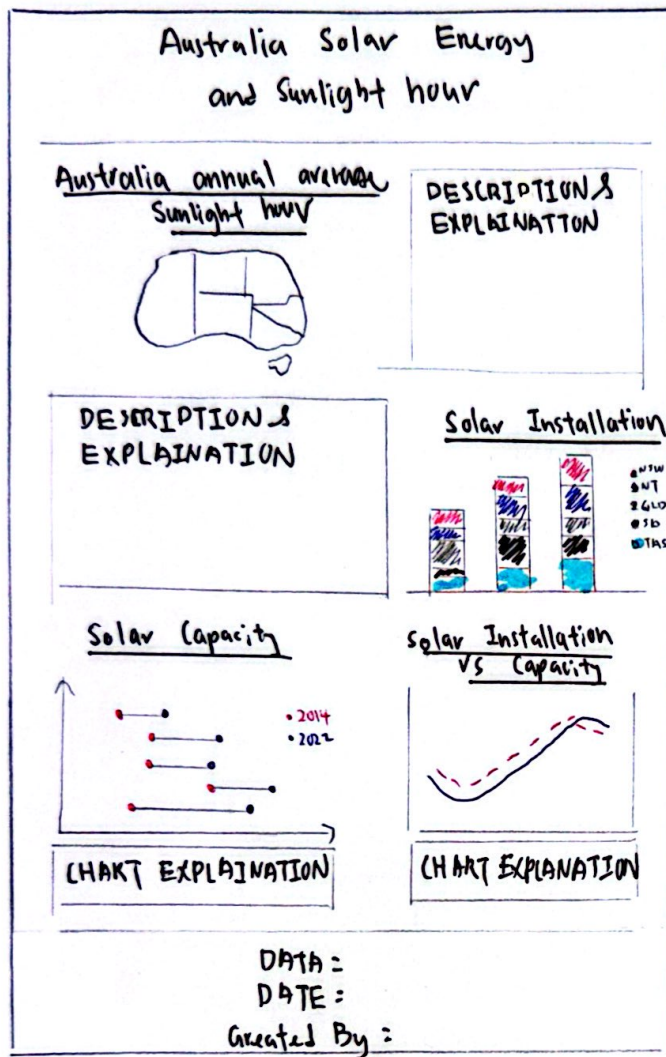 Australia Solar Energy
and Sunlight hour
Australia annual average
Sunlight hour
DESCRIPTION &
EXPLAINATION
DESCRIPTION &
EXPLAINATION
Solar Installation
NSW
NT
QLD
TAS
Solar Capacity
2014
2022
Solar Installation
vs Capacity
CHART EXPLAINATION
CHART EXPLANATION
DATA =
DATE =
Created By =